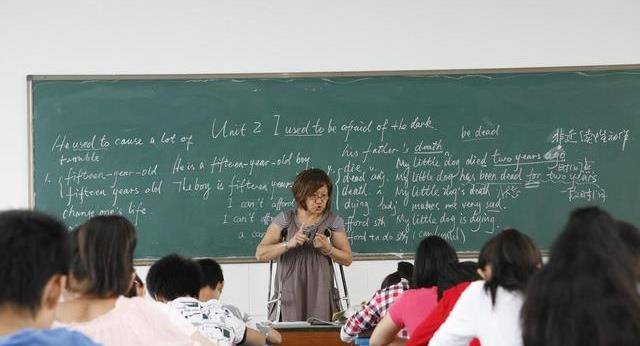 Unit 2 I used to be afraid of the dark
He used to cause a lot of
trouble
1. fifteen-year-old
fifteen years old
change one's life
He is a fifteen-year-old boy
The boy is fifteen years
I can't afford
I can't
a can
his father's death
die v.
dead adj.
death n.
dying adj.
afford sth
afford to do sth (can/will)
be dead
My little dog died two years ago
My little dog has been dead for two years
My little dog's death
makes me very sad.
My little dog is dying.